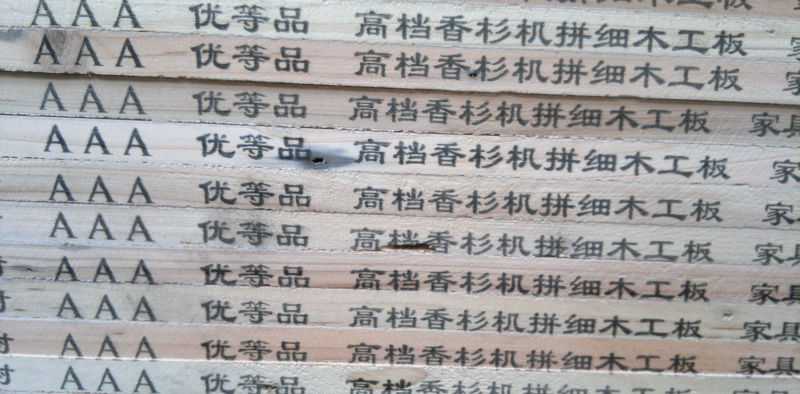 AAA 优等品 高档香杉机拼细木工板
AAA 优等品 高档香杉机拼细木工板 家
AAA 优等品 高档香杉机拼细木工板 家具
AAA 优等品 高档香杉机拼细木工板 家
AAA 优等品 高档香杉机拼细木工板 家
AAA 优等品 高档香杉机拼细木工板 家具
AAA 优等品 高档香杉机拼细木工板 家具
AAA 优等品 高档香杉机拼细木工板 家具
AAA 优等品 高档香杉机拼细木工板 家具
AAA 优等品 高档香杉机拼细木工板